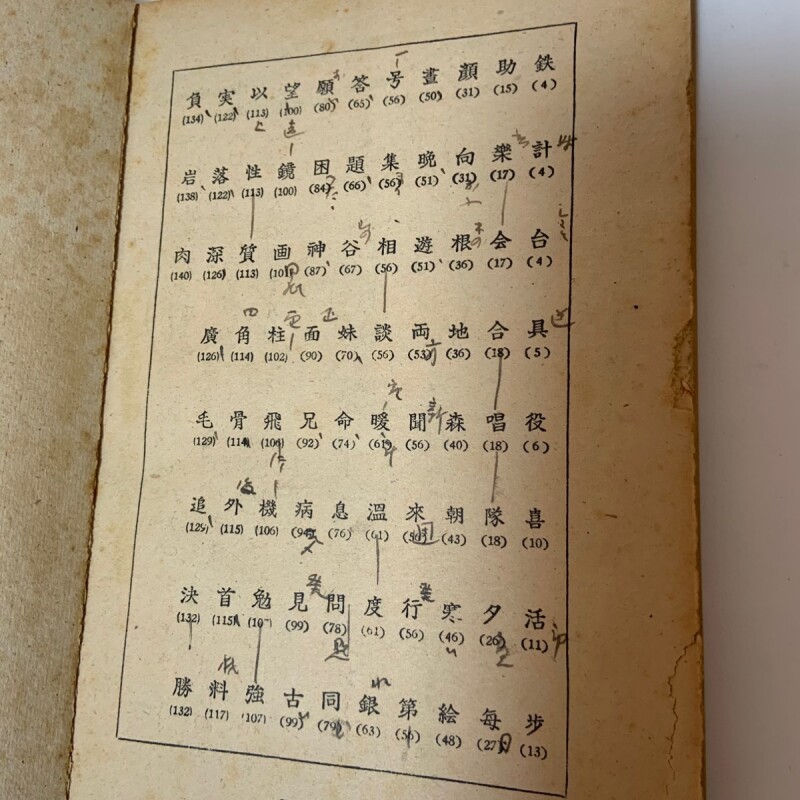 鉄(4) 計(4) 台(4) 具(5) 役(6) 喜(10) 活(11) 歩(13)
助(15) 樂(17) 会(17) 合(18) 唱(18) 隊(18) 夕(26) 每(27)
顔(31) 向(31) 根(36) 地(36) 森(40) 朝(43) 寒(46) 絵(48)
畫(50) 晩(51) 遊(51) 両(53) 聞(56) 來(56) 行(56) 第(56)
号(56) 集(56) 相(56) 談(56) 暖(61) 溫(61) 度(61) 銀(63)
答(65) 題(66) 谷(67) 妹(70) 命(74) 息(76) 問(78) 同(79)
願(80) 困(84) 神(87) 面(90) 兄(92) 病(94) 見(99) 古(99)
望(100) 鏡(100) 画(101) 柱(102) 飛(106) 機(106) 勉(107) 強(107)
以(113) 性(113) 質(113) 角(114) 骨(114) 外(115) 首(115) 料(117)
実(122) 落(122) 深(126) 廣(126) 毛(129) 追(129) 決(132) 勝(132)
負(134) 岩(138) 肉(140)